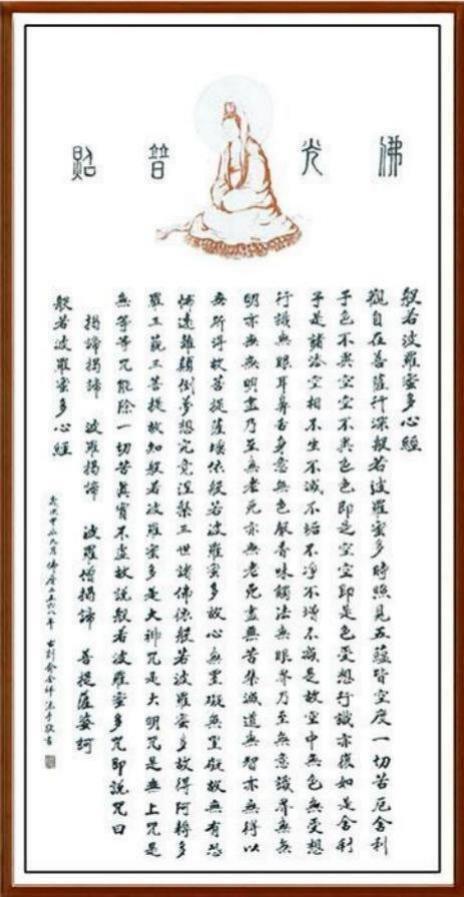 佛光普照
般若波羅蜜多心經
觀自在菩薩行深般若波羅蜜多時照見五蘊皆空度一切苦厄舍利
子色不異空空不異色色即是空空即是色受想行識亦復如是舍利
子是諸法空相不生不滅不垢不淨不增不減是故空中無色無受想
行識無眼耳鼻舌身意無色聲香味觸法無眼界乃至無意識界無無
明亦無無明盡乃至無老死亦無老死盡無苦集滅道無智亦無得以
無所得故菩提薩埵依般若波羅蜜多故心無罣礙無罣礙故無有恐
怖遠離顛倒夢想究竟涅槃三世諸佛依般若波羅蜜多故得阿耨多
羅三藐三菩提故知般若波羅蜜多是大神咒是大明咒是無上咒是
無等等咒能除一切苦真實不虛故說般若波羅蜜多咒即說咒曰
揭諦揭諦 波羅揭諦 波羅僧揭諦 菩提薩婆訶
般若波羅蜜多心經
歲次甲 九月 佛曆二五六八年